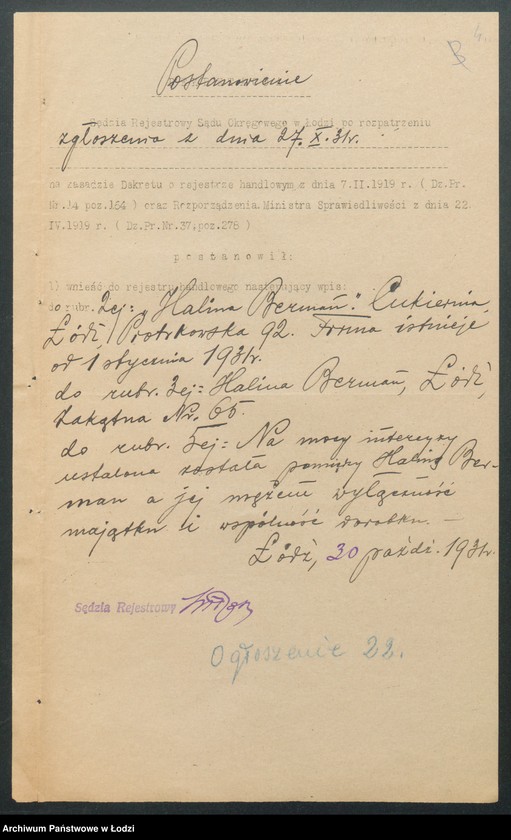 4.
Postanowienie
Sędzia Rejestrowy Sądu Okręgowego w Łodzi po rozpatrzeniu
zgłoszenia z dnia 27.X.31r.
na zasadzie Dekretu o rejestrze handlowym z dnia 7.II.1919 r. ( Dz.Pr.
Nr.14 poz.164 ) oraz Rrzporządzenia Ministra Sprawiedliwości z dnia 22
IV.1919 r ( Dz.Pr.Nr.37.poz.278 )
postanowił:
1) wnieść do rejestru handlowego następujący wpis:
do rubr. 2ej: „Halina Berman". Cukiernia,
Łódź, Piotrkowska 92. Firma istnieje
od 1 stycznia 1931r.
do rubr. 3ej: Halina Berman, Łódź,
Zakątna Nr. 65.
do rubr. 5ej: Na mocy intercyzy
ustalona została pomiędzy Haliną Ber-
man a jej mężem wyłączność
majątku i wspólność dorobku. —
Łódź, 30 paźdz. 1931r.
Sędzia Rejestrowy
Ogłoszenie 22.
Archiwum Państwowe w Łodzi